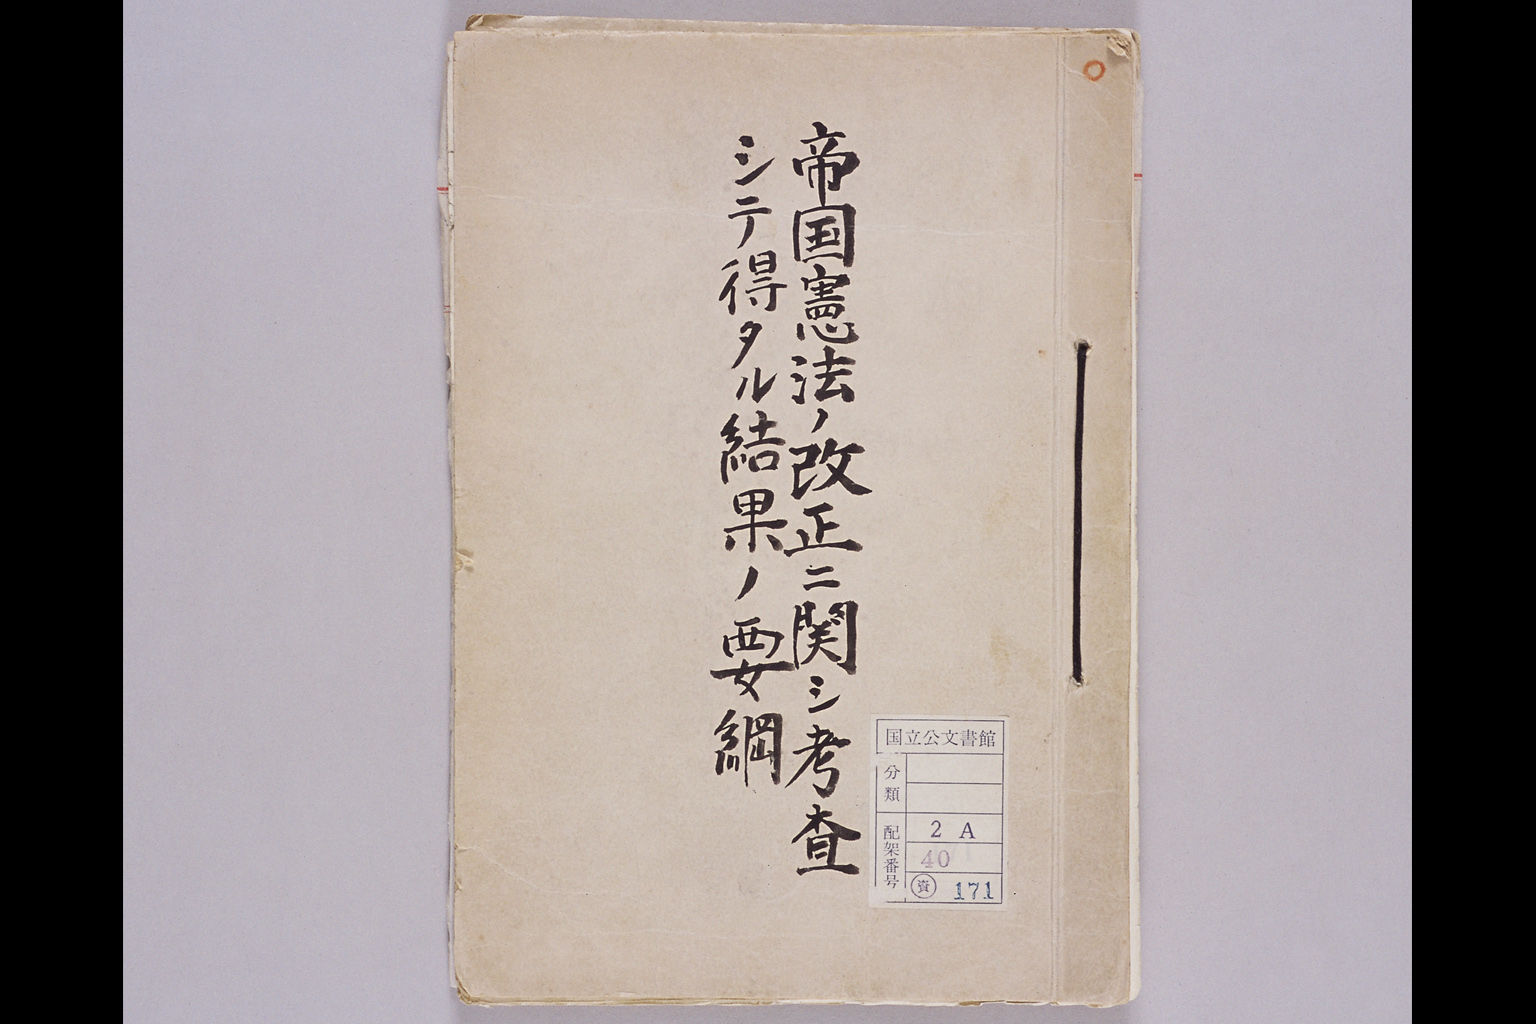 帝国憲法ノ改正ニ関シ考査
シテ得タル結果ノ要綱
国立公文書館
分類
配架番号
2 A
40
資 171